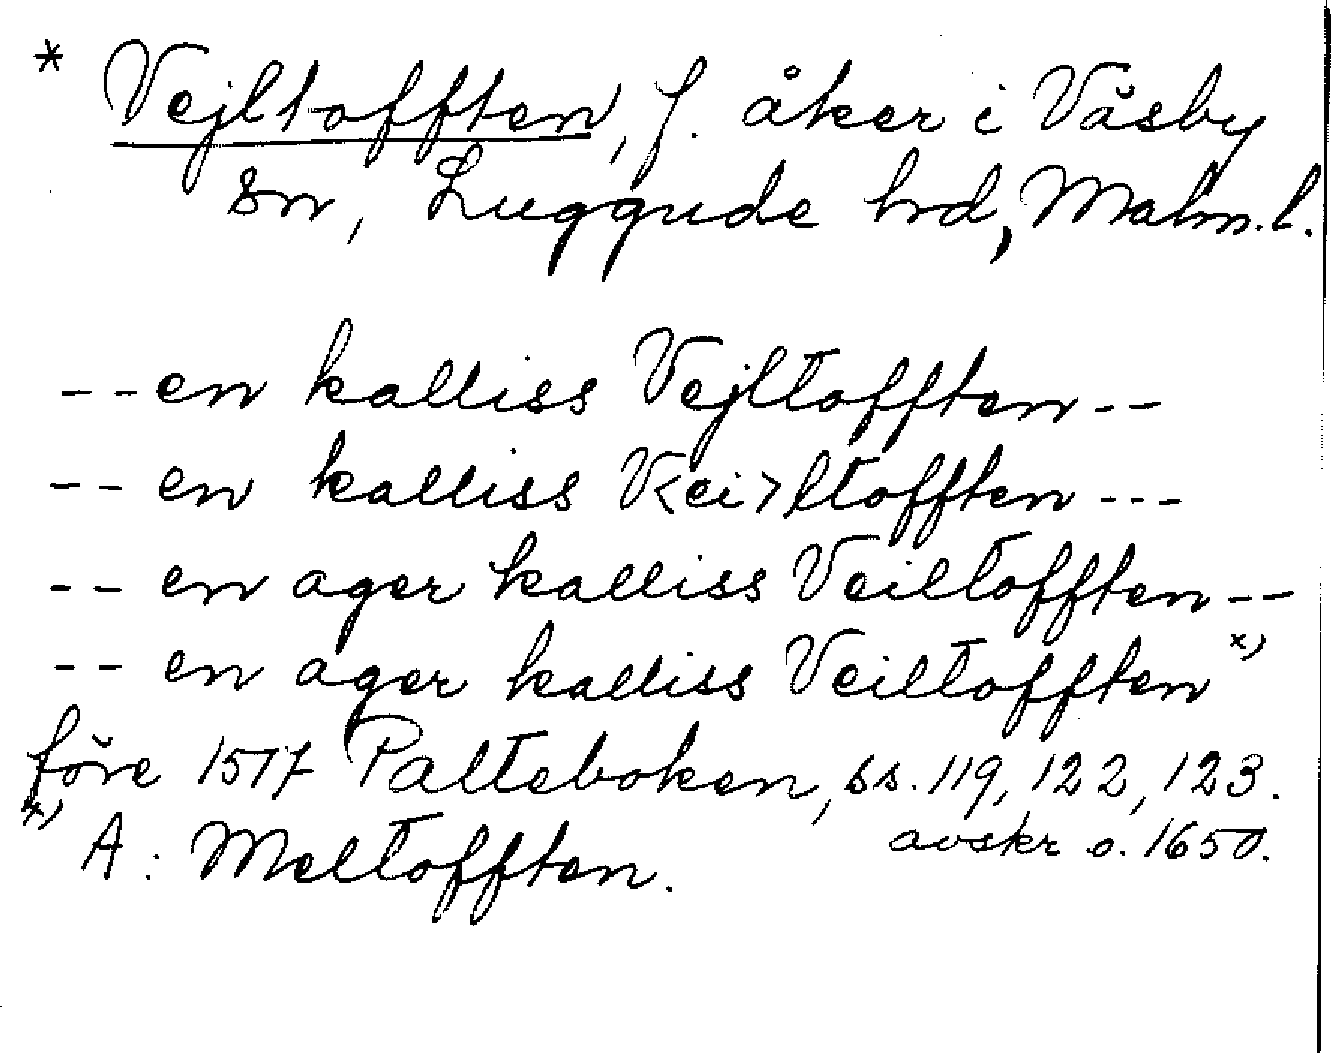 * Vejltofften, f. åker i Väsby
sn, Luggude hd, Malm.l.
--en kalliss Vejltofften--
--en kalliss V<ei>ltofften---
--en ager kalliss Veiltofften--
--en ager kalliss Veiltofften x)
före 1517 Palteboken, ss. 119, 122, 123.
avskr o. 1650.
x) A: Meltofften.